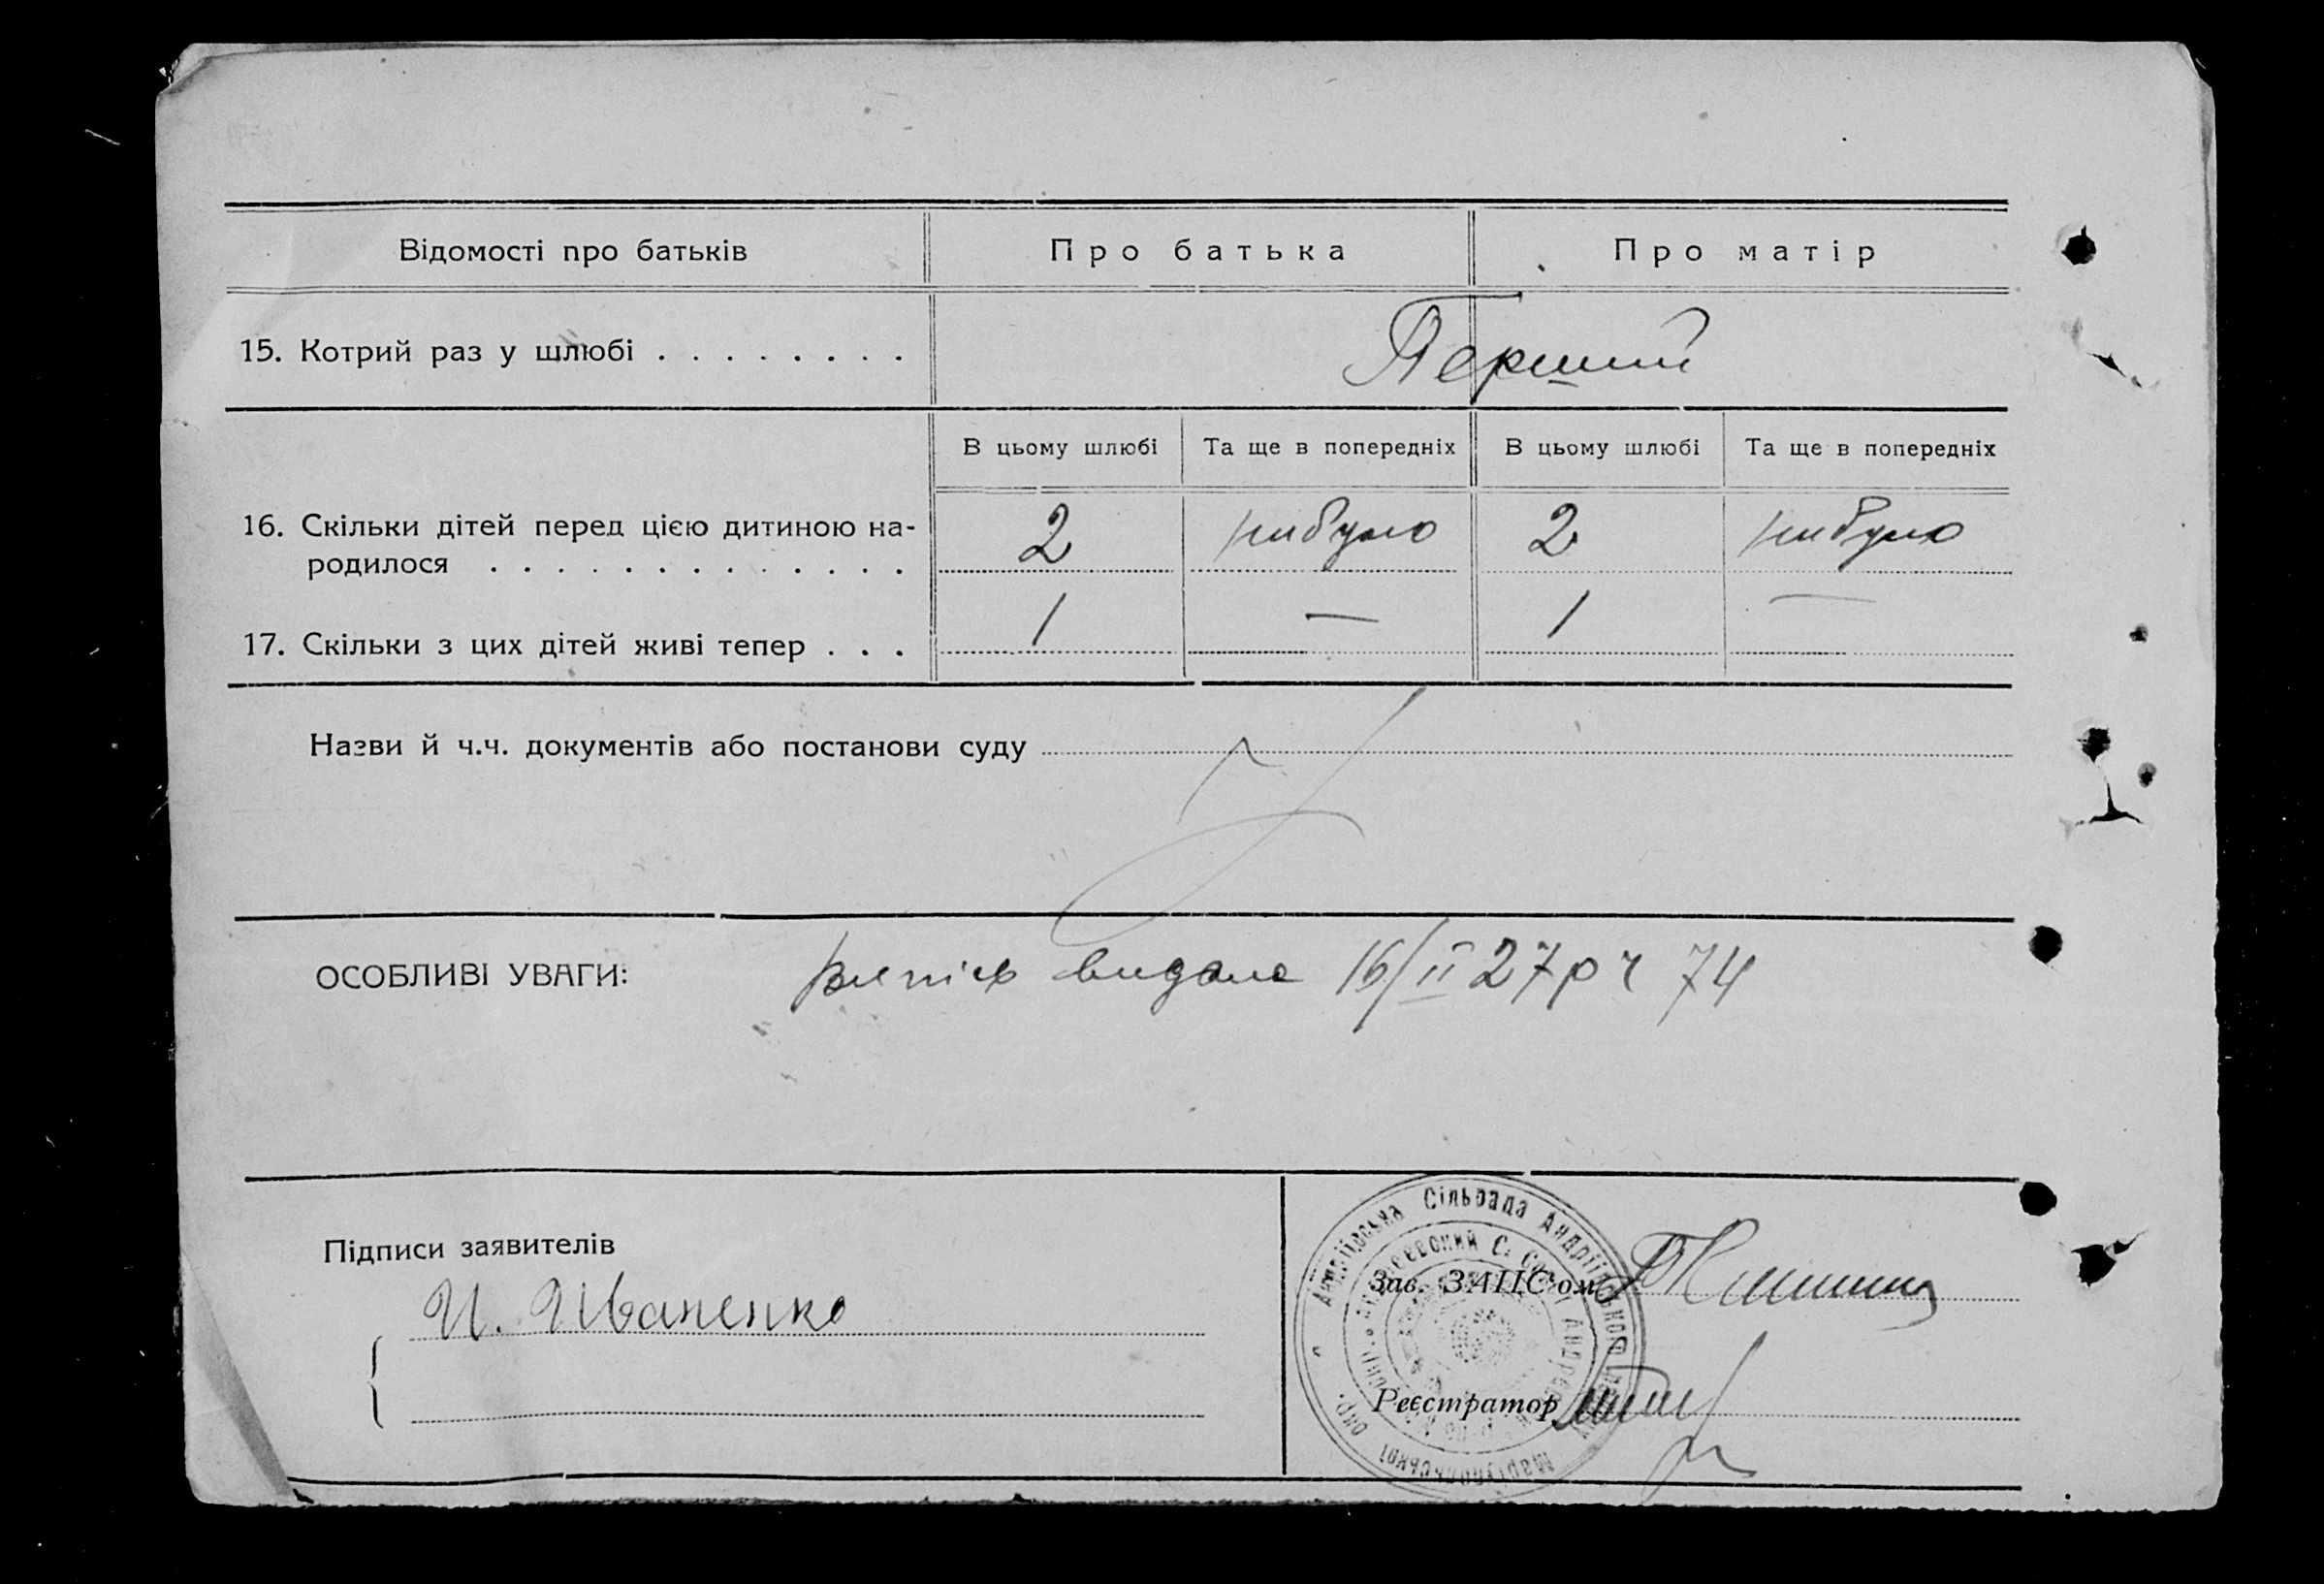 Відомості про батьків
Про батька
Про матір
15. Котрий раз у шлюбі . . . . . . . .
Перший
В цьому шлюбі
Та ще в попередніх
В цьому шлюбі
Та ще в попередніх
16. Скільки дітей перед цією дитиною на-
родилося . . . . . . . . . . . . .
2
нибуло
2
нибуло
17. Скільки з цих дітей живі тепер . . .
1
—
1
—
Назви й ч.ч. документів або постанови суду
ОСОБЛИВІ УВАГИ:
видала 16/II 27 р ч 74
Підписи заявителів
И. Иваненко
Андріївська Сільрада Андріївського
Маріупольської окр.
Зав. ЗАЦС'ом
Реєстратор